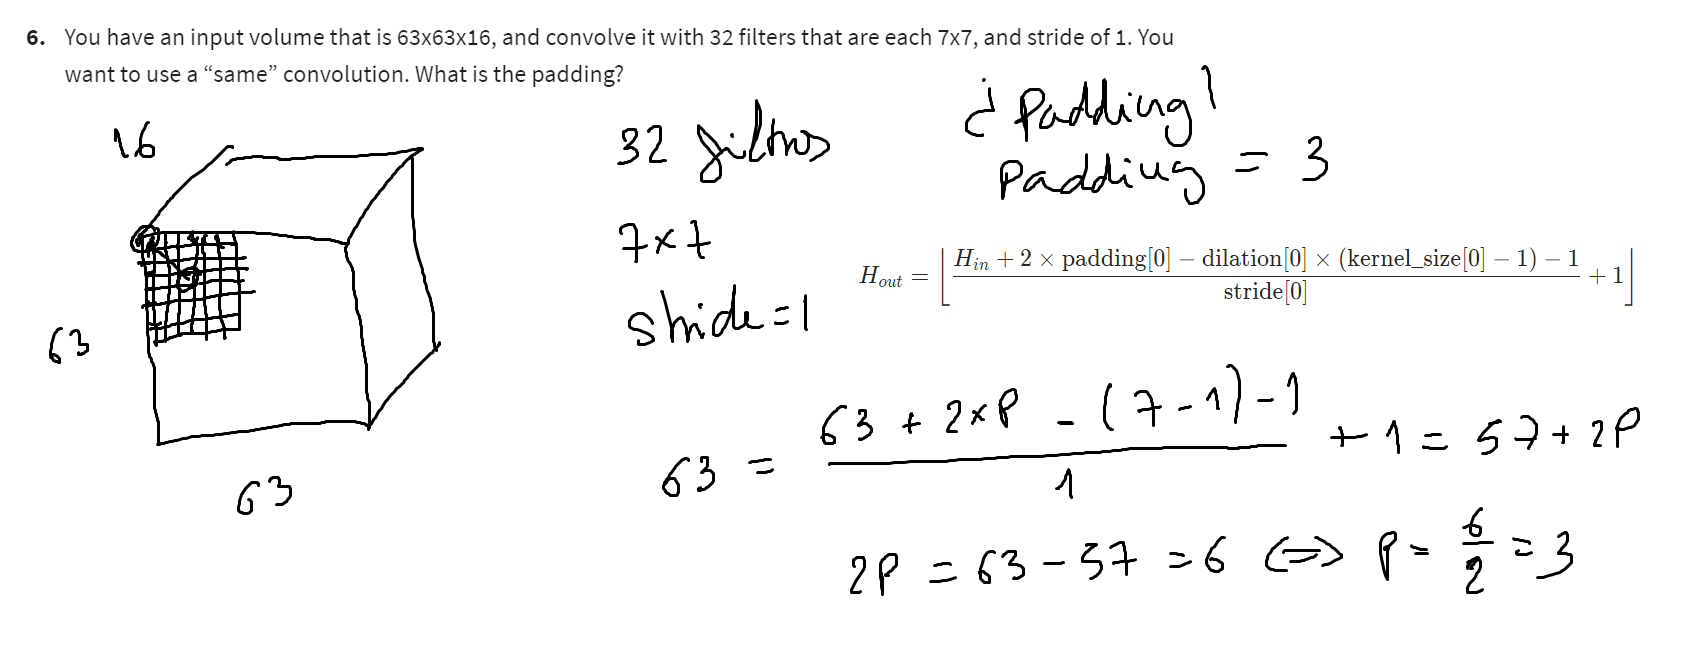 6. You have an input volume that is 63x63x16, and convolve it with 32 filters that are each 7x7, and stride of 1. You
want to use a “same” convolution. What is the padding?
¿Padding?
Padding = 3
16
63
63
32 filtros
7x7
stride=1
H_out = ⌊ (H_in + 2 × padding[0] − dilation[0] × (kernel_size[0] − 1) − 1) / stride[0] + 1 ⌋
63 = (63 + 2×P - (7-1)-1) / 1 + 1 = 57 + 2P
2P = 63 - 57 = 6 <=> P = 6/2 = 3